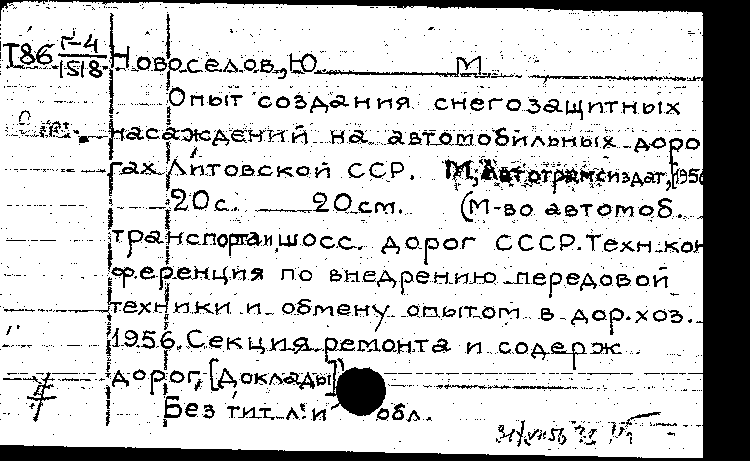 Т86 Г-4
1518
Новоселов, Ю М
Опыт создания снегозащитных
насаждений на автомобильных доро
гах Литовской ССР. М, Автотрансиздат, [1956
20 с. 20 см. (М-во автомоб.
транспорта и шосс. дорог СССР. Техн. кон
ференция по внедрению передовой
техники и обмену опытом в дор. хоз.
1956. Секция ремонта и содерж
дорог, [Доклады]
Без тит. л. и обл.